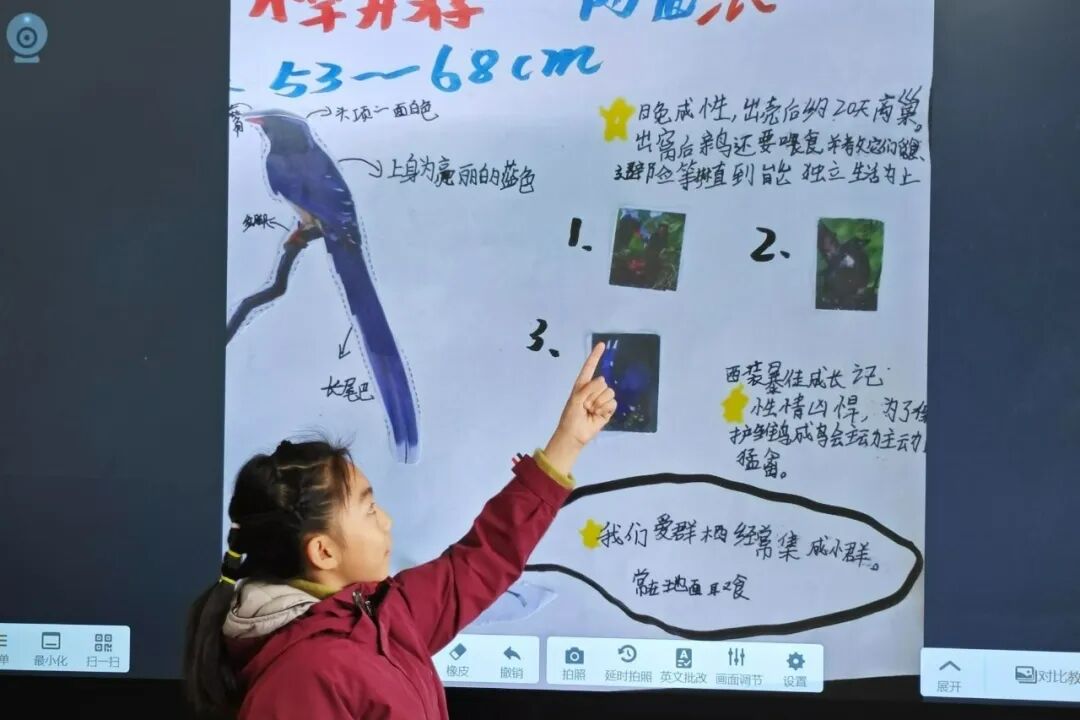 53～68cm
头顶一面白色
日龟成性，出壳后约20天离巢。
出窝后亲鸟还要喂食
避险等 直到能独立生活为止
上身为亮丽的蓝色
1、
2、
3、
长尾巴
西装暴徒成长记
性情凶悍，为了保
护雏鸟成鸟会主动
猛禽。
我们爱群栖经常集成小群。
常在地面取食
单 最小化 扫一扫
橡皮 撤销
拍照 延时拍照 英文批改 画面调节 设置
展开
对比教